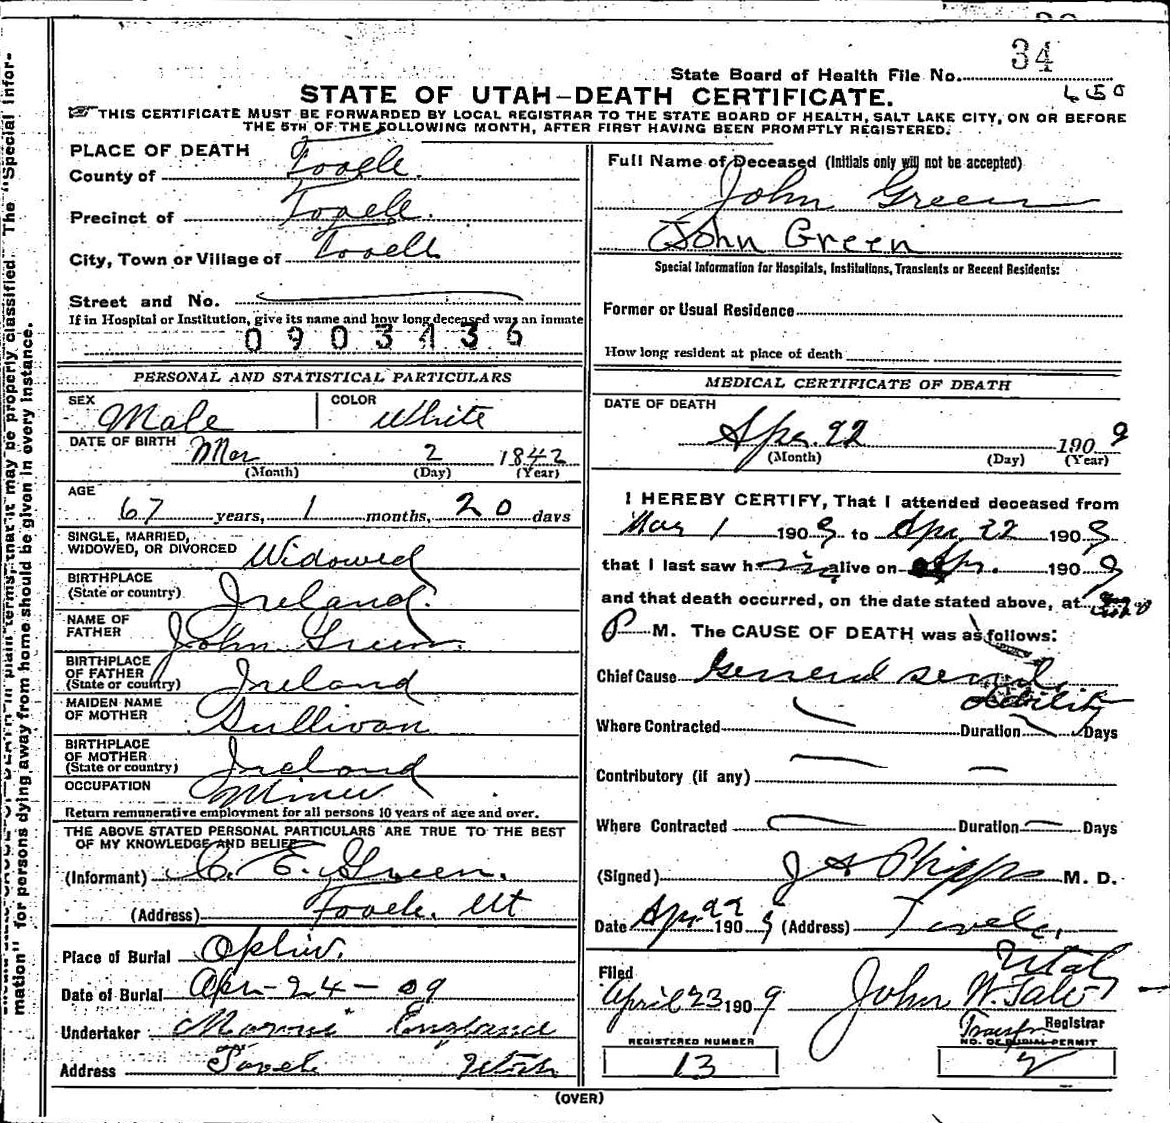 34
State Board of Health File No.
STATE OF UTAH–DEATH CERTIFICATE.
650
THIS CERTIFICATE MUST BE FORWARDED BY LOCAL REGISTRAR TO THE STATE BOARD OF HEALTH, SALT LAKE CITY, ON OR BEFORE
THE 5TH OF THE FOLLOWING MONTH, AFTER FIRST HAVING BEEN PROMPTLY REGISTERED.
PLACE OF DEATH
County of Tooele.
Precinct of Tooele.
City, Town or Village of Tooele
Street and No.
If in Hospital or Institution, give its name and how long deceased was an inmate
0903436
PERSONAL AND STATISTICAL PARTICULARS
SEX Male COLOR White
DATE OF BIRTH Mar 2 1842
(Month) (Day) (Year)
AGE
67 years, 1 months, 20 days
SINGLE, MARRIED,
WIDOWED, OR DIVORCED Widowed
BIRTHPLACE
(State or country) Ireland.
NAME OF
FATHER John Green.
BIRTHPLACE
OF FATHER
(State or country) Ireland
MAIDEN NAME
OF MOTHER Sullivan
BIRTHPLACE
OF MOTHER
(State or country) Ireland
OCCUPATION Miner
Return remunerative employment for all persons 10 years of age and over.
THE ABOVE STATED PERSONAL PARTICULARS ARE TRUE TO THE BEST
OF MY KNOWLEDGE AND BELIEF
(Informant) C. E. Green.
(Address) Tooele. Ut
Place of Burial Ophir.
Date of Burial Apr-24-09
Undertaker England
Address Tooele Utah
Full Name of Deceased (Initials only will not be accepted)
John Green
John Green
Special Information for Hospitals, Institutions, Transients or Recent Residents:
Former or Usual Residence
How long resident at place of death
MEDICAL CERTIFICATE OF DEATH
DATE OF DEATH
Apr. 22 1909
(Month) (Day) (Year)
I HEREBY CERTIFY, That I attended deceased from
Mar 1 1909 to Apr. 22 1909
that I last saw him alive on Apr. 1909
and that death occurred, on the date stated above, at
P M. The CAUSE OF DEATH was as follows:
Chief Cause General senile
debility
Where Contracted Duration Days
Contributory (if any)
Where Contracted Duration Days
(Signed) J A Phipps M. D.
Date Apr 22 1909 (Address) Tooele,
Utah
Filed
April 23 1909 John W. Tate
Registrar
REGISTERED NUMBER
13
Transfer
NO. OF BURIAL PERMIT
2
(OVER)
mation" for persons dying away from home should be given in every instance.
in plain terms, that it may be properly classified. The "Special Infor-